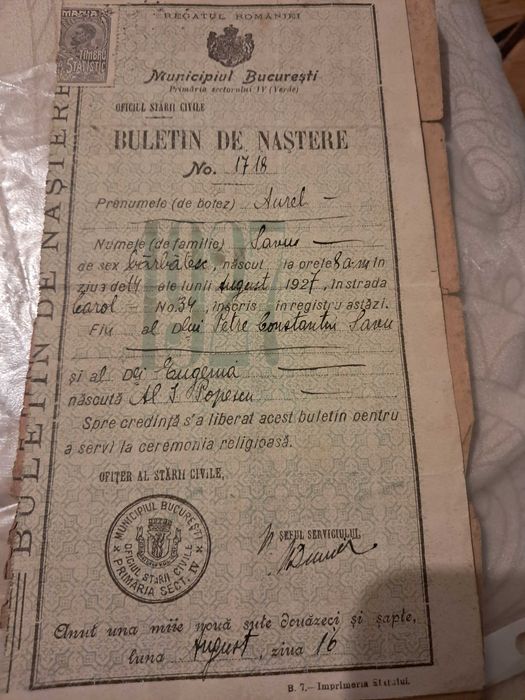 REGATUL ROMÂNIEI
TIMBRU
STATISTIC
Municipiul Bucureşti
Primăria sectorului IV (Verde)
OFICIUL STĂRII CIVILE
BULETIN DE NAŞTERE
BULETIN DE NAŞTERE
No. 1718
1927
Prenumele (de botez) Aurel —
Numele (de familie) Savu —
de sex bărbătesc, născut la orele 8 a.m în
ziua de 14 ale lunii August 1927, în strada
Carol — No. 34, înscris în registru astăzi.
Fiu al Dlui Petre Constantin Savu
şi al Dei Eugenia —
născută Al I Popescu —
Spre credinţă s'a liberat acest buletin pentru
a servi la ceremonia religioasă.
OFIŢER AL STĂRII CIVILE,
MUNICIPIUL BUCUREŞTI
OFICIUL STĂRII CIVILE
PRIMĂRIA SECT. IV
ŞEFUL SERVICIULUI
Anul una mie nouă sute douăzeci şi şapte,
luna August, ziua 16
B. 7.— Imprimeria Statului.